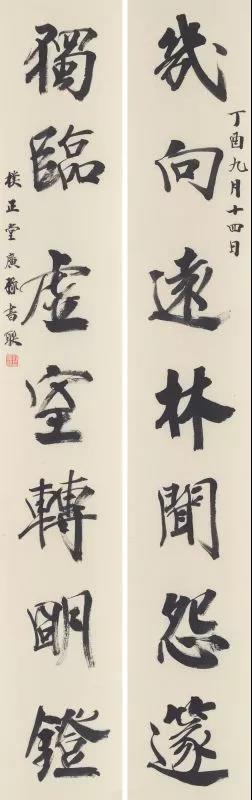 丁酉九月十四日
幾向遠林聞怨篴
獨臨虛室轉明鐙
樸正堂 書聯